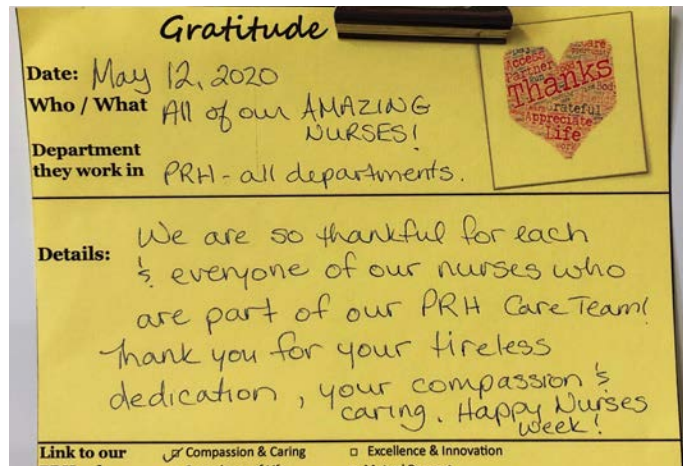 Gratitude
Date: May 12, 2020
Who / What All of our AMAZING
NURSES!
Department
they work in PRH - all departments.
Access
Partner
Thanks
Grateful
Appreciate
Life
Details: We are so thankful for each
& everyone of our nurses who
are part of our PRH Care Team!
Thank you for your tireless
dedication, your compassion &
caring. Happy Nurses
week!
Link to our ☑ Compassion & Caring □ Excellence & Innovation